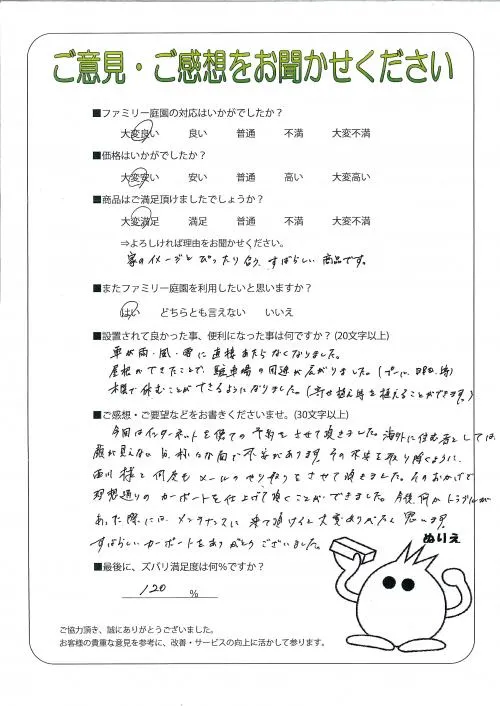 ご意見・ご感想をお聞かせください
■ファミリー庭園の対応はいかがでしたか？
大変良い 良い 普通 不満 大変不満
■価格はいかがでしたか？
大変安い 安い 普通 高い 大変高い
■商品はご満足頂けましたでしょうか？
大変満足 満足 普通 不満 大変不満
⇒よろしければ理由をお聞かせください。
家のイメージとぴったり合う、すばらしい商品です。
■またファミリー庭園を利用したいと思いますか？
はい どちらとも言えない いいえ
■設置されて良かった事、便利になった事は何ですか？(20文字以上)
車が雨・風・雪に直接あたらなくなりました。
屋根ができたことで、駐車場の用途が広がりました。
できるようになりました。
■ご感想・ご要望などをお書きくださいませ。(30文字以上)
今回はインターネットを使っての予約をさせて頂きました。海外に住む者としては、
顔が見えない分、様々な面で不安があります。その不安を取り除くように、
西川様と何度もメールのやり取りをさせて頂きました。そのおかげで
予想通りのカーポートを仕上げて頂くことができました。今後、何かトラブルが
あった際には、メンテナンスに来て頂けると大変ありがたく思います。
すばらしいカーポートをありがとうございました。
■最後に、ズバリ満足度は何％ですか？
120 %
ぬりえ
ご協力頂き、誠にありがとうございました。
お客様の貴重な意見を参考に、改善・サービスの向上に活かして参ります。